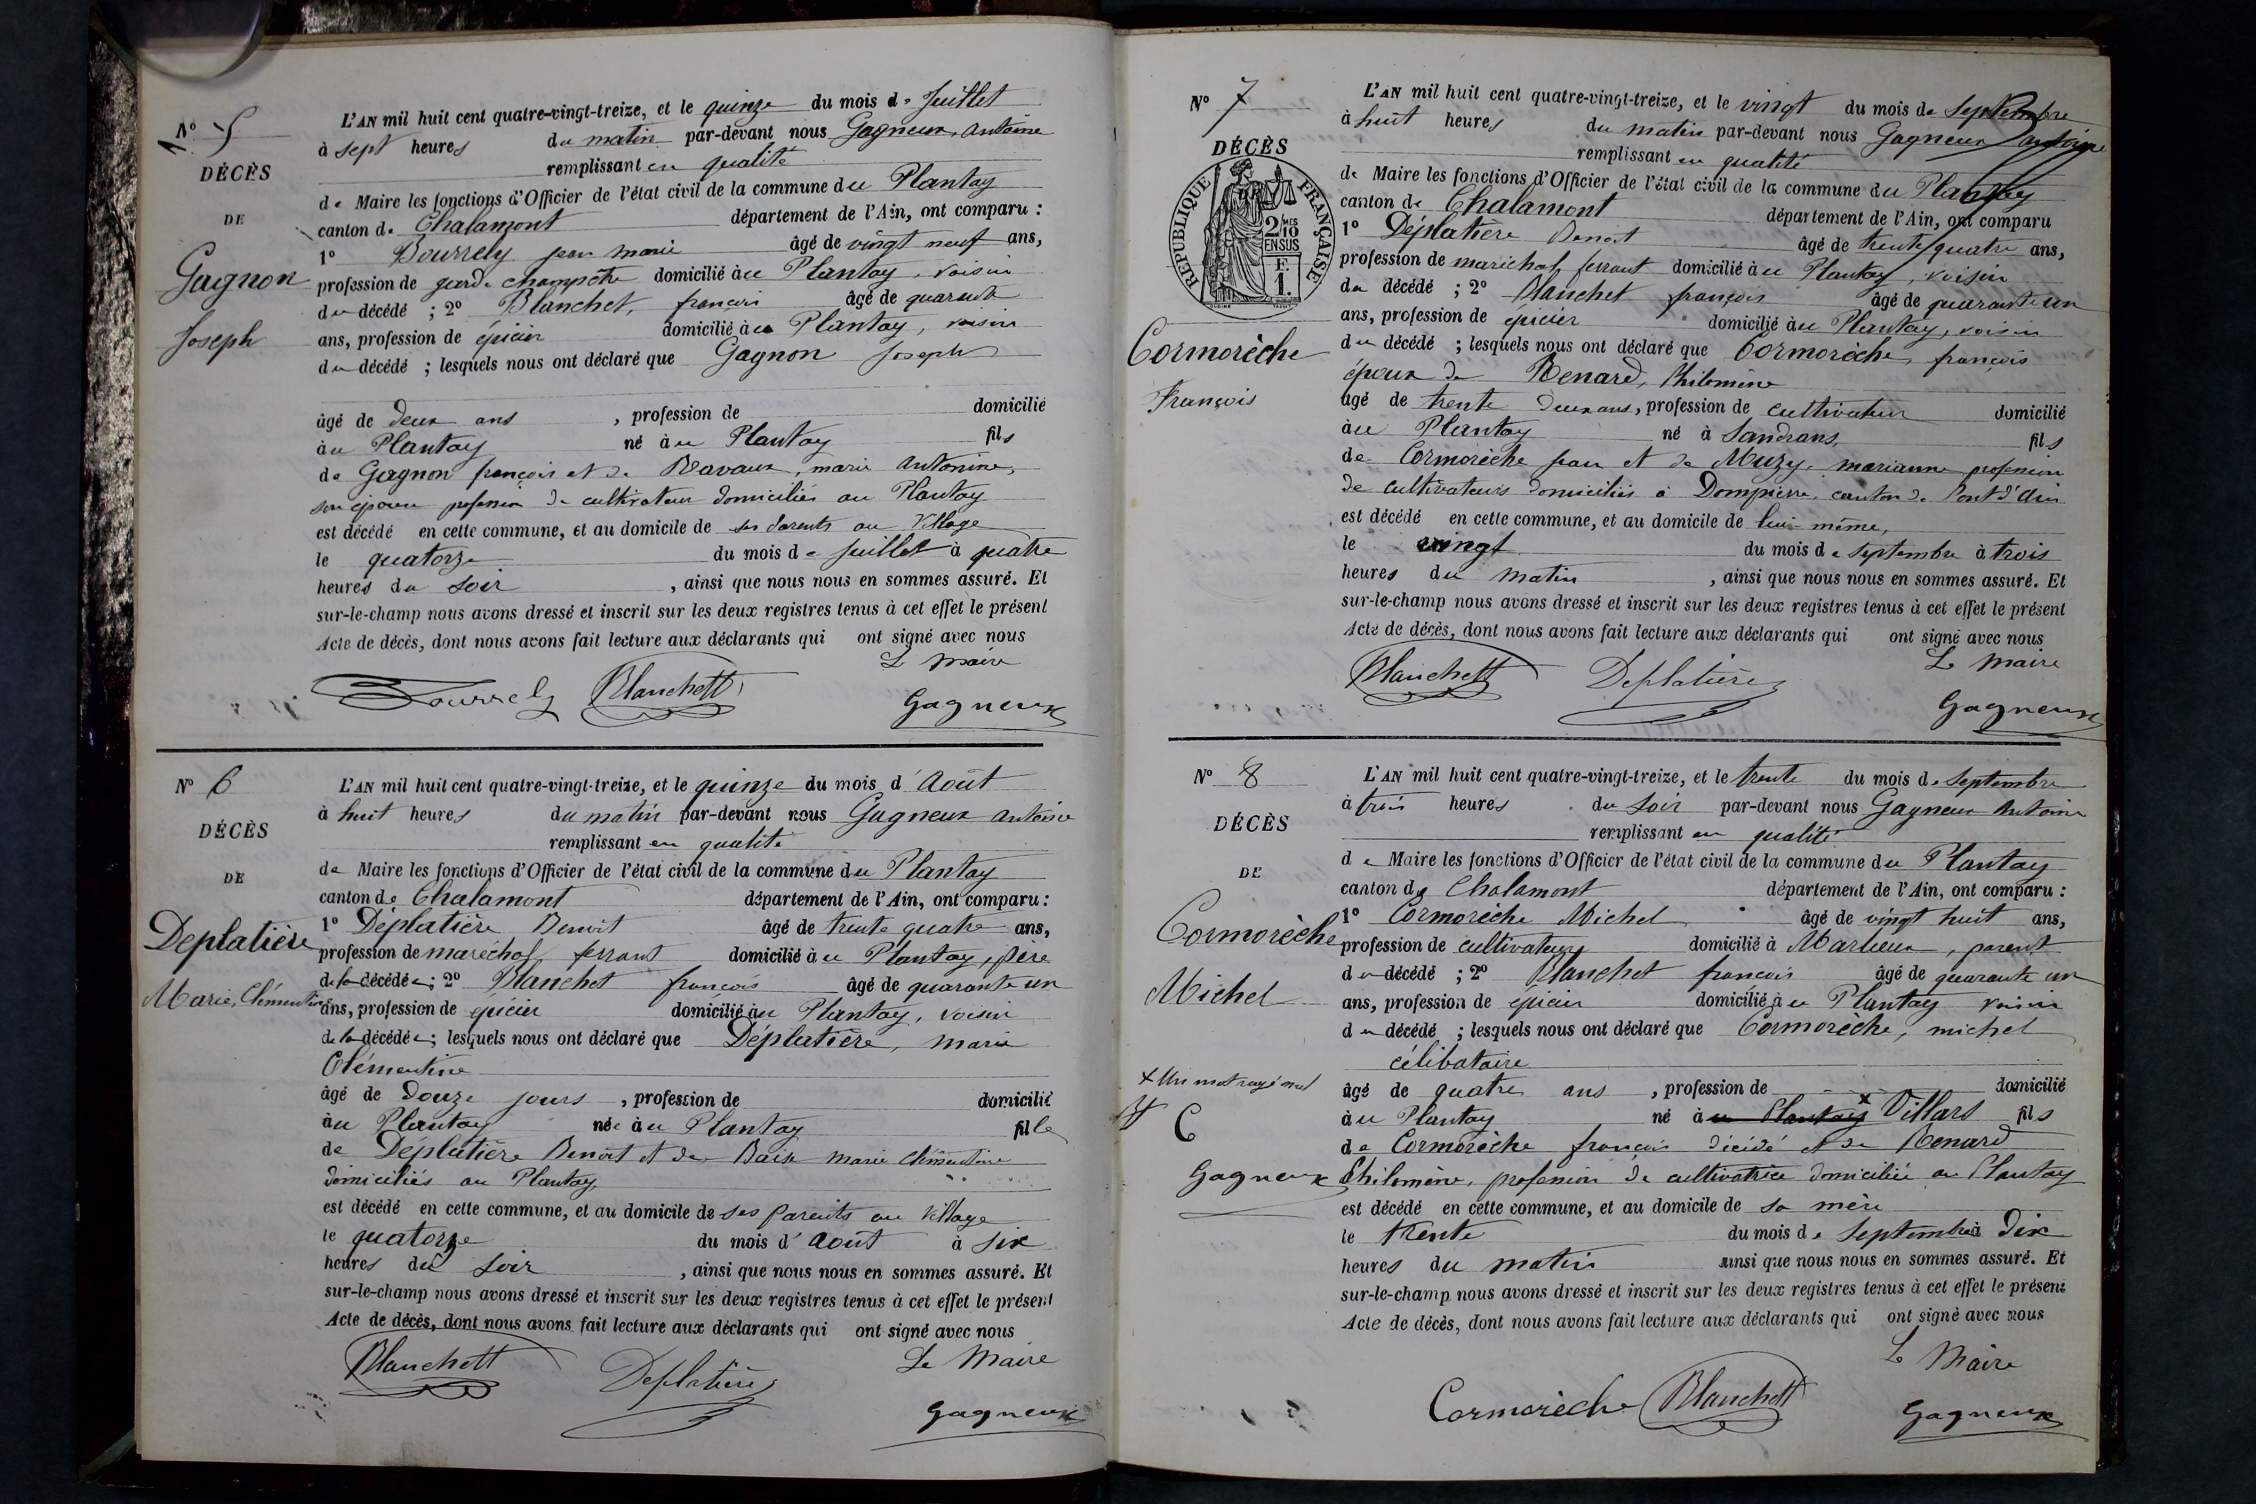 N° 5
DÉCÈS
DE
Gagnon
Joseph
L'AN mil huit cent quatre-vingt-treize, et le quinze du mois de Juillet
à sept heures du matin par-devant nous Gagneux, Antoine
remplissant en qualité
de Maire les fonctions d'Officier de l'état civil de la commune du Plantay
canton de Chalamont département de l'Ain, ont comparu :
1° Bourrely jean marie âgé de vingt neuf ans,
profession de garde champêtre domicilié au Plantay, voisin
du décédé ; 2° Blanchet, françois âgé de quarante
ans, profession de épicier domicilié au Plantay, voisin
du décédé ; lesquels nous ont déclaré que Gagnon Joseph
âgé de deux ans , profession de domicilié
au Plantay né au Plantay fils
de Gagnon françois et de Ravaux, marie Antonine,
son épouse profession de cultivateur domiciliés au Plantay
est décédé en cette commune, et au domicile de ses parents au Village
le quatorze du mois de Juillet à quatre
heures du soir , ainsi que nous nous en sommes assuré. Et
sur-le-champ nous avons dressé et inscrit sur les deux registres tenus à cet effet le présent
Acte de décès, dont nous avons fait lecture aux déclarants qui ont signé avec nous
Le Maire
Bourrely Blanchett Gagneux
N° 6
DÉCÈS
DE
Deplatière
Marie, Clémentine
L'AN mil huit cent quatre-vingt-treize, et le quinze du mois d'Août
à huit heures du matin par-devant nous Gagneux antoine
remplissant en qualité
de Maire les fonctions d'Officier de l'état civil de la commune du Plantay
canton de Chalamont département de l'Ain, ont comparu :
1° Déplatière Benoit âgé de trente quatre ans,
profession de maréchal ferrant domicilié au Plantay, père
de la décédée ; 2° Blanchet françois âgé de quarante un
ans, profession de épicier domicilié au Plantay, voisin
de la décédée ; lesquels nous ont déclaré que Déplatière, marie
Clémentine
âgé de Douze jours , profession de domicilié
au Plantay née au Plantay fille
de Déplatière Benoit et de Baise marie Clémentine
domiciliés au Plantay
est décédé en cette commune, et au domicile de ses parents au Village
le quatorze du mois d'août à six
heures du soir , ainsi que nous nous en sommes assuré. Et
sur-le-champ nous avons dressé et inscrit sur les deux registres tenus à cet effet le présent
Acte de décès, dont nous avons fait lecture aux déclarants qui ont signé avec nous
Le Maire
Blanchett Deplatière Gagneux
N° 7
DÉCÈS
RÉPUBLIQUE FRANÇAISE
2 MES 10
EN SUS
F.
1.
Cormorèche
François
L'AN mil huit cent quatre-vingt-treize, et le vingt du mois de septembre
à huit heures du matin par-devant nous Gagneux antoine
remplissant en qualité
de Maire les fonctions d'Officier de l'état civil de la commune du Plantay
canton de Chalamont département de l'Ain, ont comparu
1° Déplatière Benoit âgé de trente quatre ans,
profession de maréchal ferrant domicilié au Plantay, voisin
du décédé ; 2° Blanchet françois âgé de quarante un
ans, profession de épicier domicilié au Plantay, voisin
du décédé ; lesquels nous ont déclaré que Cormorèche, françois
époux de Renard, Philomène
âgé de trente deux ans, profession de cultivateur domicilié
au Plantay né à Sandrans fils
de Cormorèche jean et de Muzy, marianne profession
de cultivateurs domiciliés à Dompierre, canton de Pont d'Ain
est décédé en cette commune, et au domicile de lui même,
le vingt du mois de septembre à trois
heures du matin , ainsi que nous nous en sommes assuré. Et
sur-le-champ nous avons dressé et inscrit sur les deux registres tenus à cet effet le présent
Acte de décès, dont nous avons fait lecture aux déclarants qui ont signé avec nous
Le Maire
Blanchett Deplatière Gagneux
N° 8
DÉCÈS
DE
Cormorèche
Michel
x Un mot rayé nul
C
Gagneux
L'AN mil huit cent quatre-vingt-treize, et le trente du mois de Septembre
à trois heures du soir par-devant nous Gagneux Antoine
remplissant en qualité
de Maire les fonctions d'Officier de l'état civil de la commune du Plantay
canton de Chalamont département de l'Ain, ont comparu :
1° Cormorèche Michel âgé de vingt huit ans,
profession de cultivateur domicilié à Marlieux, parent
du décédé ; 2° Blanchet françois âgé de quarante un
ans, profession de épicier domicilié au Plantay voisin
du décédé ; lesquels nous ont déclaré que Cormorèche, michel
célibataire
âgé de quatre ans , profession de domicilié
au Plantay né au Plantay x Villars fils
de Cormorèche françois décédé et de Renard
Philomène, profession de cultivatrice domiciliée au Plantay
est décédé en cette commune, et au domicile de sa mère
le trente du mois de septembre à dix
heures du matin ainsi que nous nous en sommes assuré. Et
sur-le-champ nous avons dressé et inscrit sur les deux registres tenus à cet effet le présent
Acte de décès, dont nous avons fait lecture aux déclarants qui ont signé avec nous
Le Maire
Cormorèche Blanchett Gagneux